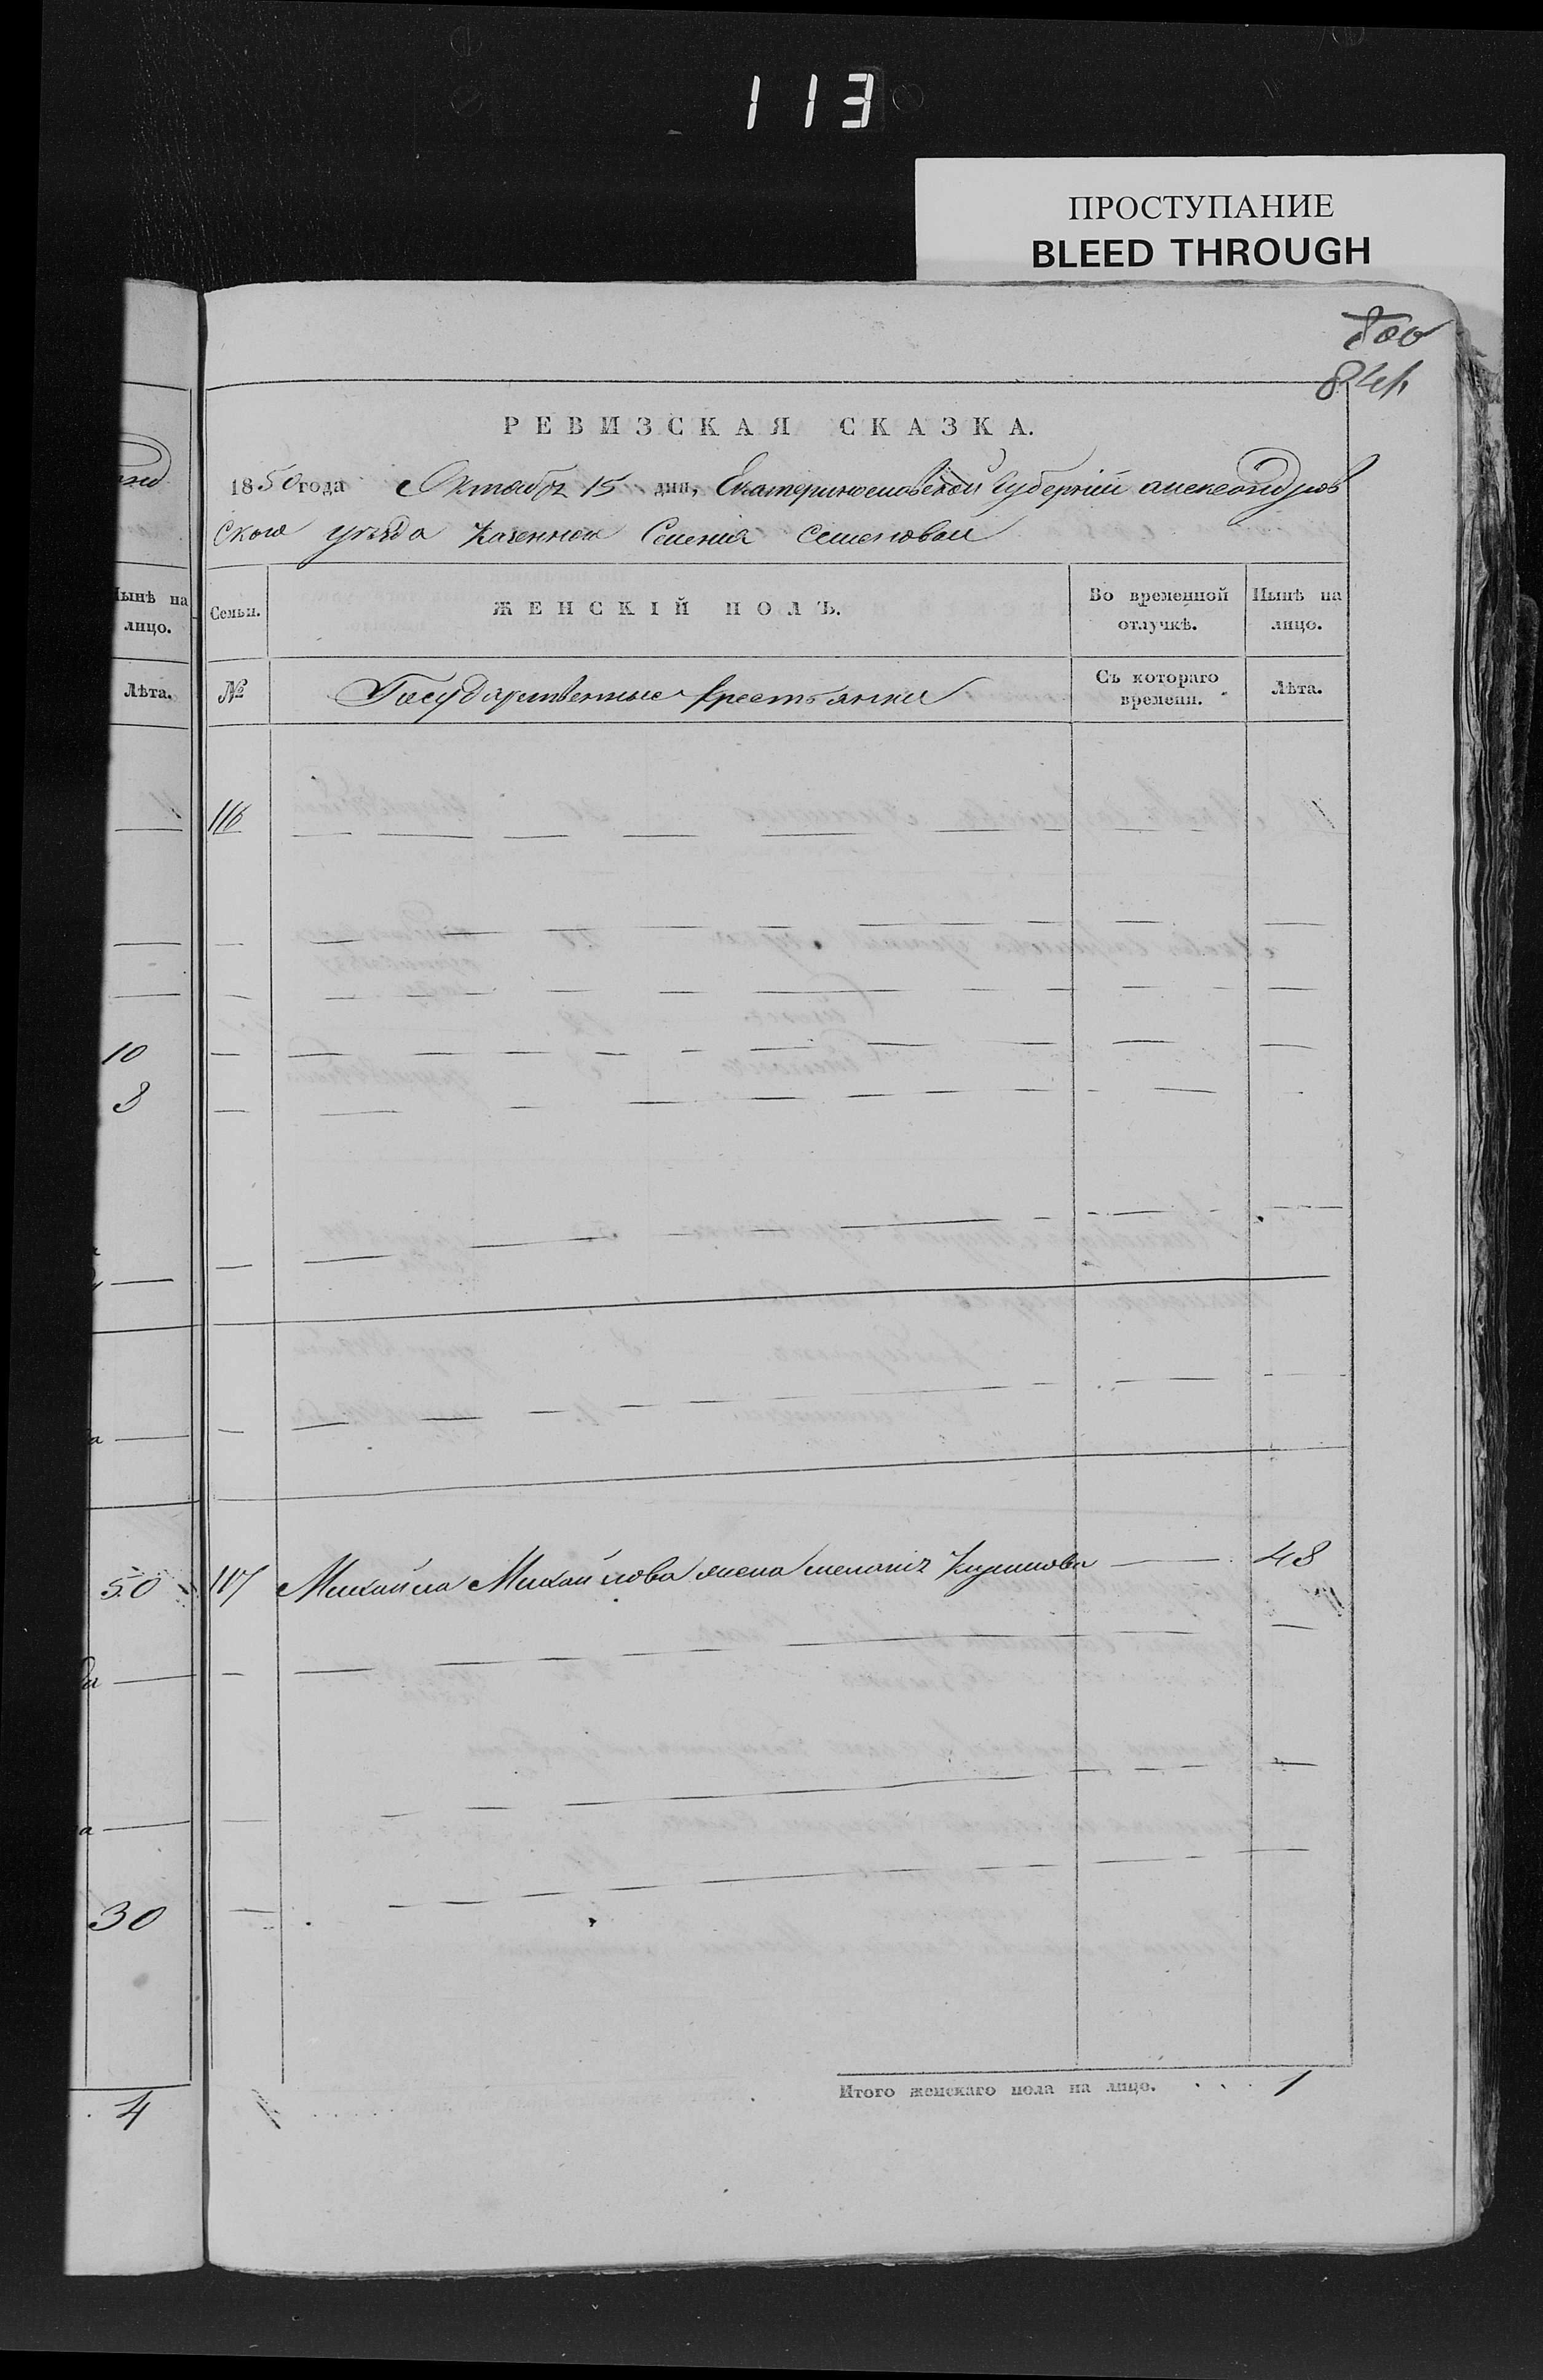 113
ПРОСТУПАНИЕ
BLEED THROUGH
800
841
РЕВИЗСКАЯ СКАЗКА.
1850 года Октября 15 дня, Екатеринославской Губерніи александров
ского уезда Казенного Селенія Семеновки
Нынѣ на лицо.
Семьи.
ЖЕНСКІЙ ПОЛЪ.
Во временной отлучкѣ.
Нынѣ на лицо.
Лѣта.
№
Государственные крестьянки
Съ котораго времени.
Лѣта.
116
10
8
50
117 Михайла Михайлова жена мелания 48
30
Итого женскаго пола на лицо. . . . 1
4